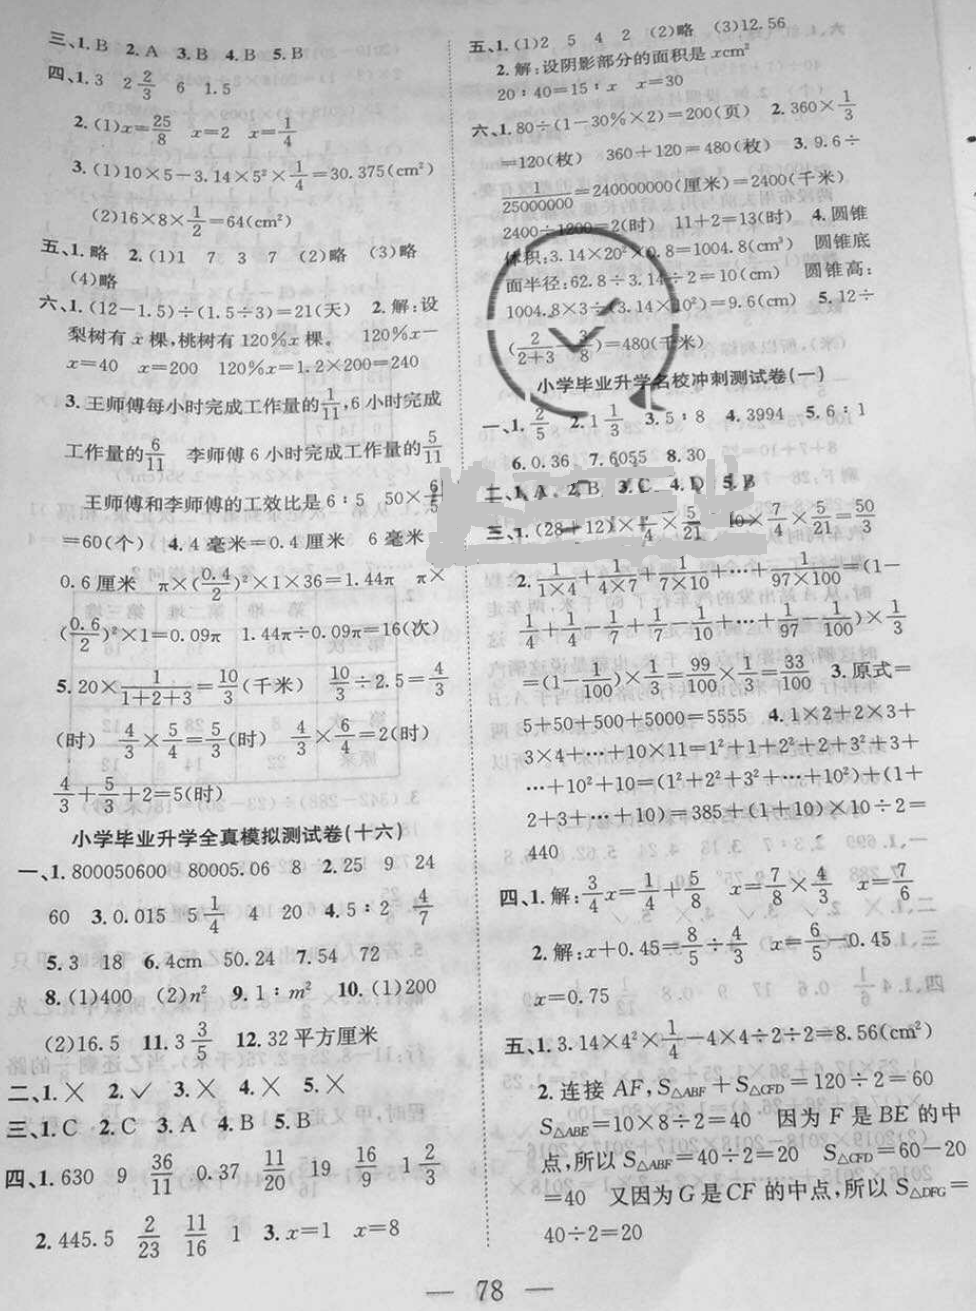 三、1. B 2. A 3. B 4. B 5. B
四、1. 3 2 2/3 6 1.5
2. (1)x=25/8 x=2 x=1/4
3. (1)10×5-3.14×5²×1/4=30.375(cm²)
(2)16×8×1/2=64(cm²)
五、1. 略 2. (1)1 7 3 7 (2)略 (3)略
(4)略
六、1. (12-1.5)÷(1.5÷3)=21(天) 2. 解:设
梨树有 x 棵,桃树有 120%x 棵。 120%x-
x=40 x=200 120%x=1.2×200=240
3. 王师傅每小时完成工作量的1/11,6 小时完成
工作量的6/11 李师傅 6 小时完成工作量的5/11
王师傅和李师傅的工效比是 6∶5 50×6/5
=60(个) 4. 4 毫米=0.4 厘米 6 毫米=
0.6 厘米 π×(0.4/2)²×1×36=1.44π π×
(0.6/2)²×1=0.09π 1.44π÷0.09π=16(次)
5. 20×1/(1+2+3)=10/3(千米) 10/3÷2.5=4/3
(时) 4/3×5/4=5/3(时) 4/3×6/4=2(时)
4/3+5/3+2=5(时)
小学毕业升学全真模拟测试卷(十六)
一、1. 800050600 80005.06 8 2. 25 9 24
60 3. 0.015 5 1/4 4 20 4. 5∶2 4/7
5. 3 18 6. 4cm 50.24 7. 54 72
8. (1)400 (2)n² 9. 1∶m² 10. (1)200
(2)16.5 11. 3 3/5 12. 32 平方厘米
二、1. × 2. √ 3. × 4. × 5. ×
三、1. C 2. C 3. A 4. B 5. B
四、1. 630 9 36/11 0.37 11/20 19 16/9 1 2/3
2. 445.5 2/23 11/16 1 3. x=1 x=8
五、1. (1)2 5 4 2 (2)略 (3)12.56
2. 解:设阴影部分的面积是 xcm²
20∶40=15∶x x=30
六、1. 80÷(1-30%×2)=200(页) 2. 360×1/3
=120(枚) 360+120=480(枚) 3. 9.6÷
1/25000000=240000000(厘米)=2400(千米)
2400÷1200=2(时) 11+2=13(时) 4. 圆锥
体积:3.14×20²×0.8=1004.8(cm³) 圆锥底
面半径:62.8÷3.14÷2=10(cm) 圆锥高:
1004.8×3÷(3.14×10²)=9.6(cm) 5. 12÷
(2/(2+3)-3/8)=480(千米)
小学毕业升学名校冲刺测试卷(一)
一、1. 2/5 2. 1 1/3 3. 5∶8 4. 3994 5. 6∶1
6. 0.36 7. 6055 8. 30
二、1. A 2. B 3. C 4. D 5. B
三、1. (28+12)×7/4×5/21 40×7/4×5/21=50/3
2. 1/(1×4)+1/(4×7)+1/(7×10)+…+1/(97×100)=(1-
1/4+1/4-1/7+1/7-1/10+…+1/97-1/100)×1/3
=(1-1/100)×1/3=99/100×1/3=33/100 3. 原式=
5+50+500+5000=5555 4. 1×2+2×3+
3×4+…+10×11=1²+1+2²+2+3²+3+
…+10²+10=(1²+2²+3²+…+10²)+(1+
2+3+…+10)=385+(1+10)×10÷2=
440
四、1. 解:3/4x=1/4+5/8 x=7/8×4/3 x=7/6
2. 解:x+0.45=8/5÷4/3 x=6/5-0.45
x=0.75
五、1. 3.14×4²×1/4-4×4÷2÷2=8.56(cm²)
2. 连接 AF,S△ABF+S△CFD=120÷2=60
S△ABE=10×8÷2=40 因为 F 是 BE 的中
点,所以 S△ABF=40÷2=20 S△CFD=60-20
=40 又因为 G 是 CF 的中点,所以 S△DFG=
40÷2=20
— 78 —